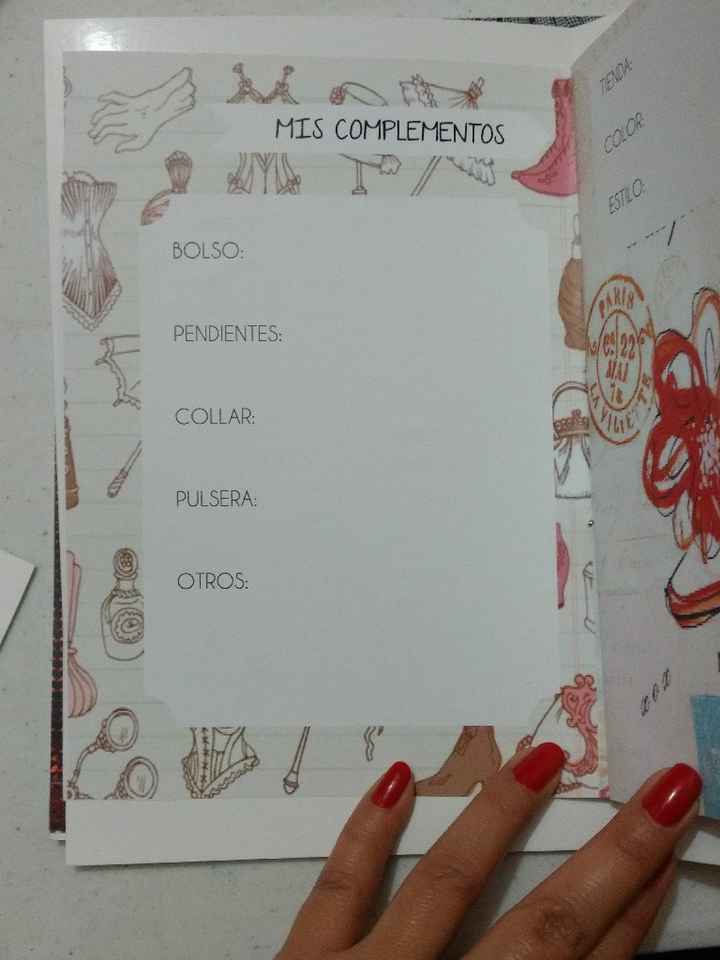 MIS COMPLEMENTOS
BOLSO:
PENDIENTES:
COLLAR:
PULSERA:
OTROS:
TIENDA:
COLOR:
ESTILO:
PARIS
22
MAI
LA VILLETTE
x o x